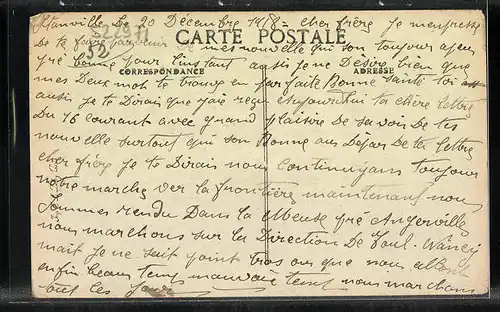 Stainville Le 20 Décembre 1918 = cher frère Je m'enpresse
De te faire parvenir De mes nouvelle qui son toujour ases
52297
52
CARTE POSTALE
pré bonne pour l'instant aussi Je ne Désire bien que
CORRESPONDANCE
ADRESSE
mes Deux mot te trouve en parfaite Bonne santé toi
aussi Je te Dirais que J'aie reçu aujourd'hui ta chère lettre
Du 16 courant avec grand plaisire De savoir De tes
nouvelle surtout qui son Bonne aus Dépar De ta lettre
cher frère Je te Dirais nous continuyons toujour
notre marche ver la frontière maintenant nous
sommes rendu Dans la Meuse pré Angerville
nous marchons sur la Direction De Toul-Nancy
mait Je ne sait point tros ou que nous allons
enfin beaus temps mauvais temps nous marchons
tout les Jours